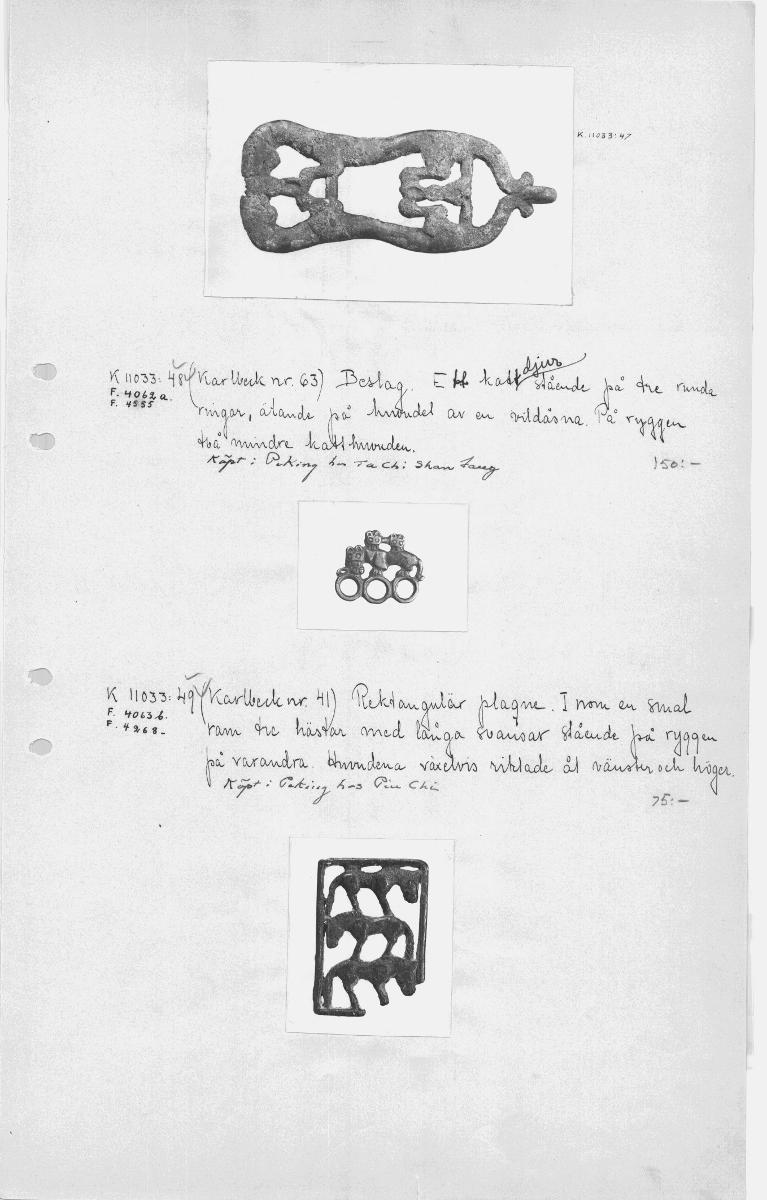 K. 11033:47
K 11033: 48 (Karlbeck nr. 63) Beslag. Ett kattdjur stående på tre runda
F. 4062a.
F. 4555
ringar, ätande på huvudet av en vildåsna. På ryggen
två mindre katthuvuden.
Köpt i Peking hos Ta Chi Shan Fang
150:-
K 11033: 49 (Karlbeck nr. 41) Rektangulär plaque. Inom en smal
F. 4063b.
F. 4268-
ram tre hästar med långa svansar stående på ryggen
på varandra. Huvudena växelvis riktade åt vänster och höger.
Köpt i Peking hos Pin Chi
75:-